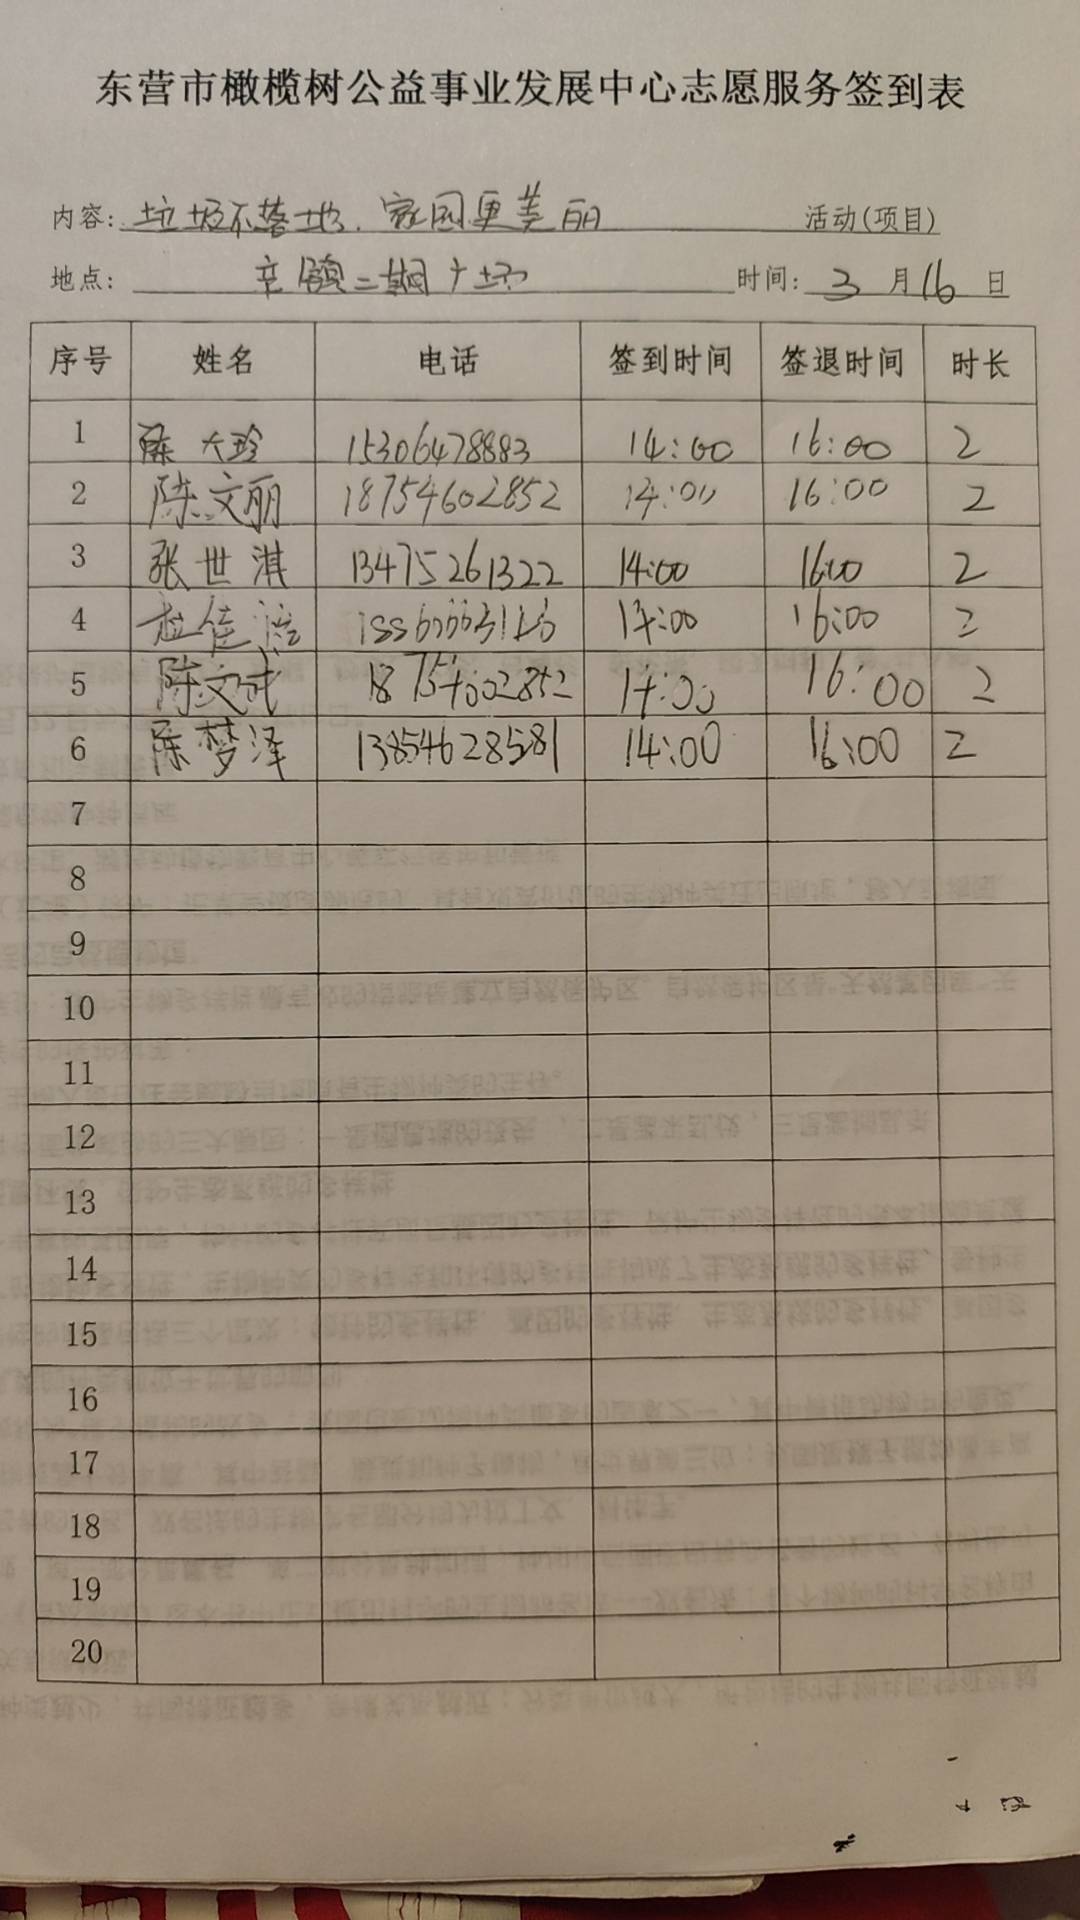 东营市橄榄树公益事业发展中心志愿服务签到表
内容: 垃圾不落地.家园更美丽 活动(项目)
地点: 辛镇二期广场 时间: 3 月 16 日
序号 姓名 电话 签到时间 签退时间 时长
1 陈大玲 15306478883 14:00 16:00 2
2 陈文丽 18754602852 14:00 16:00 2
3 张世淇 13475261322 14:00 16:00 2
4 赵佳 14:00 16:00 2
5 陈文武 14:00 16:00 2
6 陈梦泽 13854628581 14:00 16:00 2
7
8
9
10
11
12
13
14
15
16
17
18
19
20